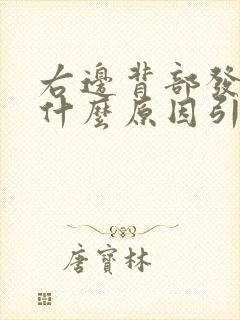 右邊背部發
什麼原因引
唐寶林